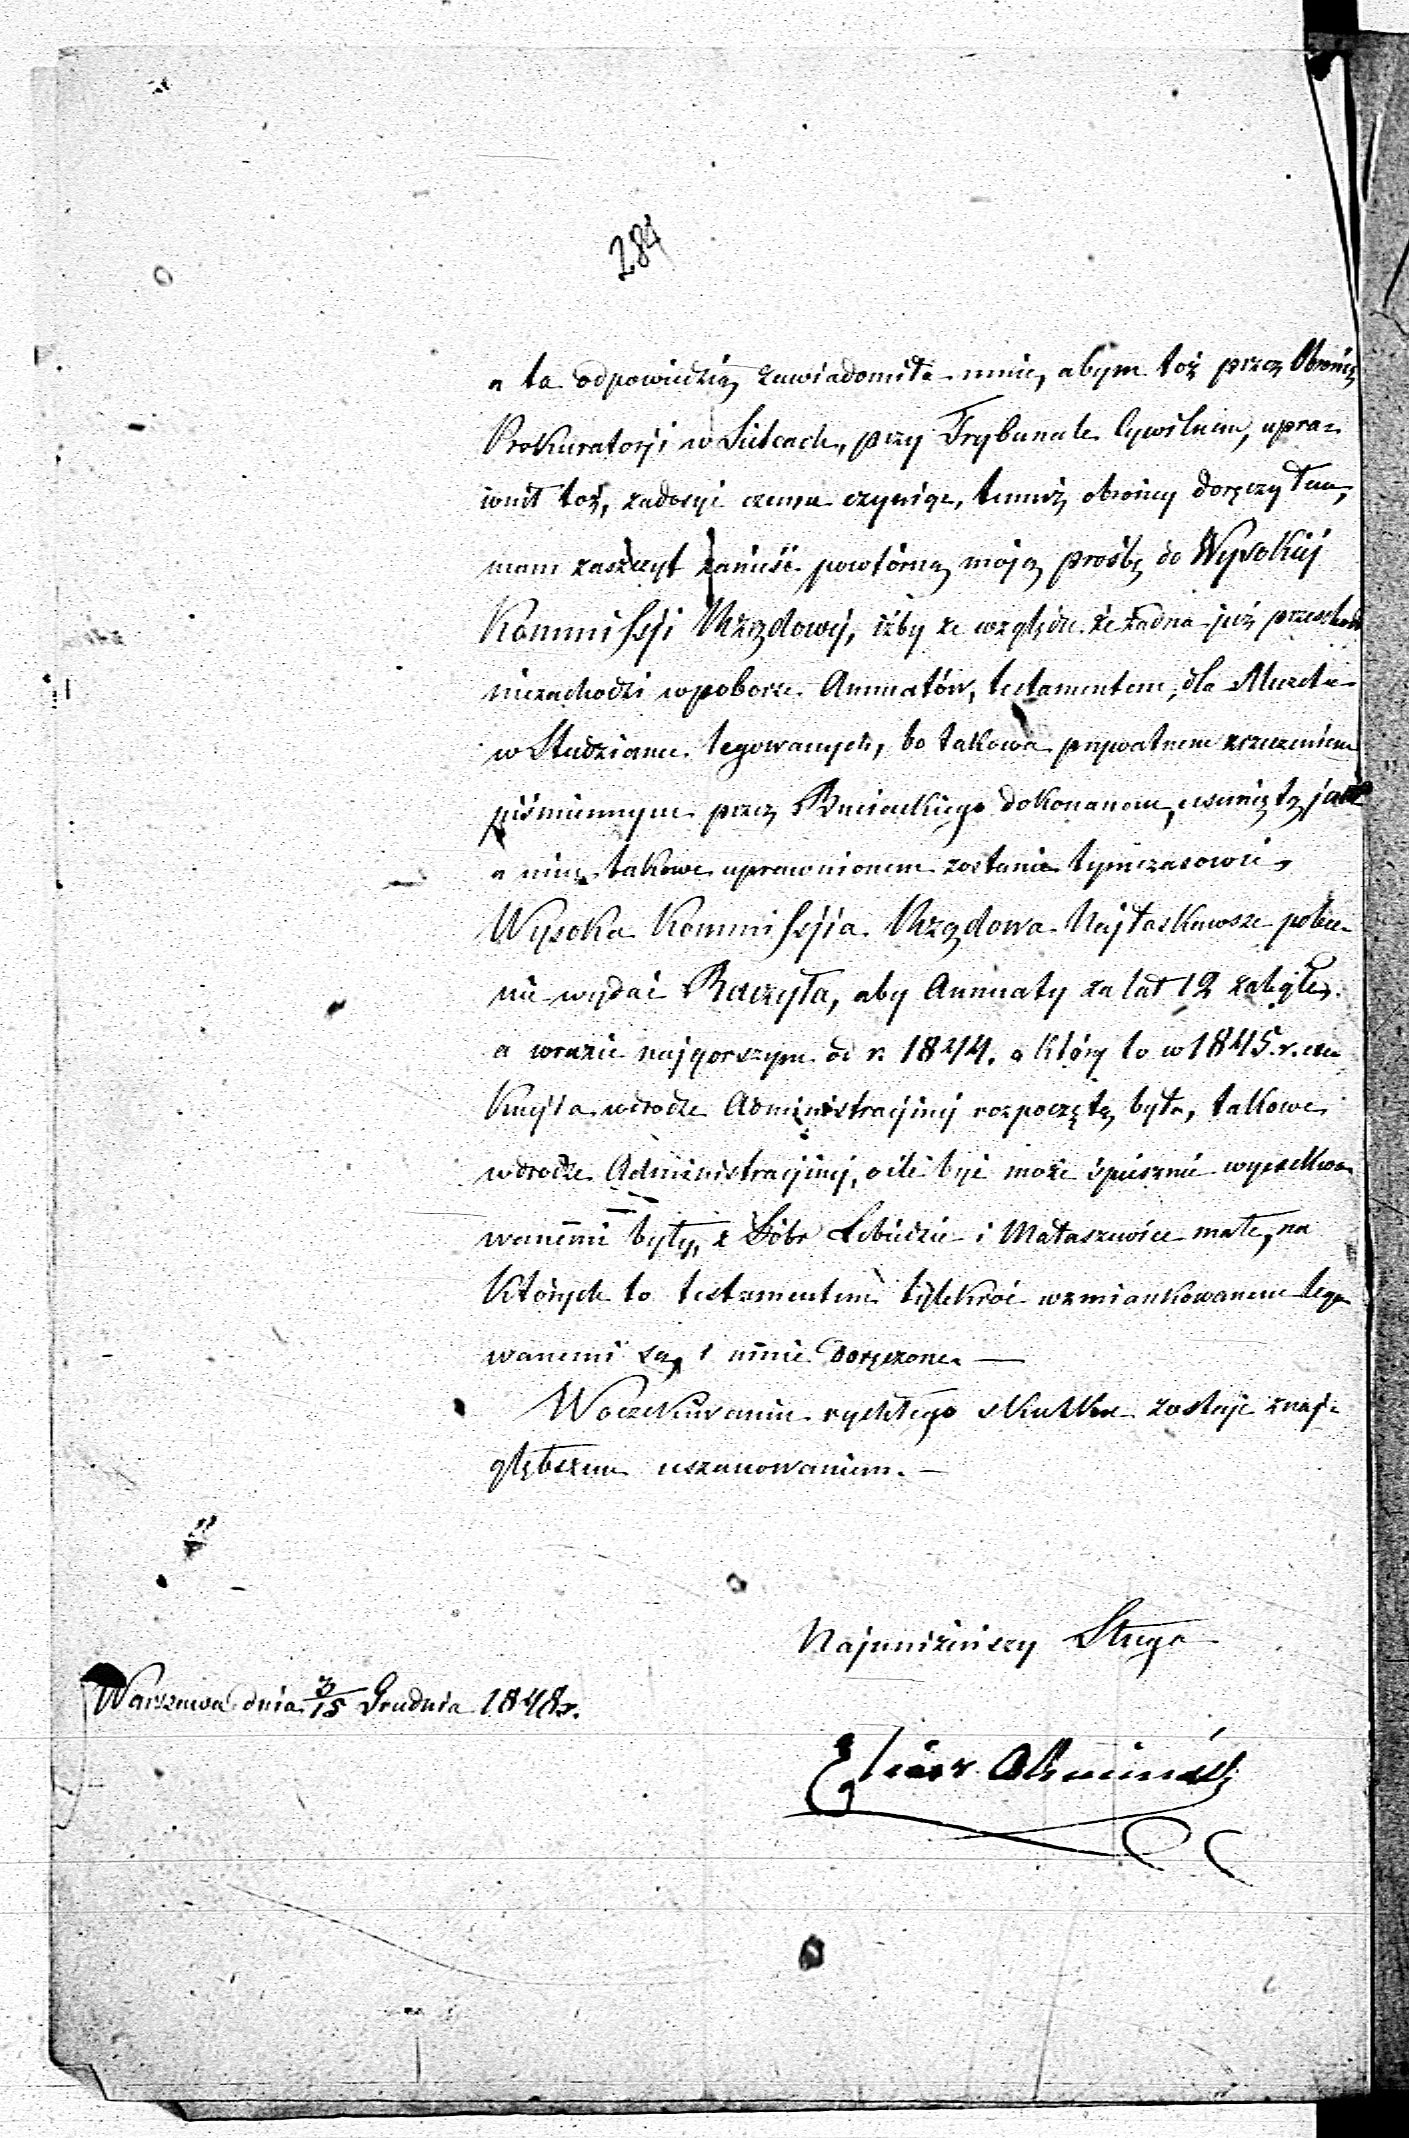 284
a ta odpowiedzią zawiadomiła mnie, abym też przez Obrońcę
Prokuratorji w Sielcach, przy Trybunale Cywilnem, upra-
wnił toż, zadosyć czemu czyniąc, temuż obrońcy doręczyłem,
mam zaszczyt zanieść powtórną moją prośbę do Wysokiéj
Kommissji Rządowéj, iżby ze względu że żadna już przeszkoda
niezachodzi w poborze Annuatów, testamentem, dla Meczetu
w Studziance legowanych, bo takowa prywatnem zrzeczeniem
piśmiennym przez Buczackiego dokonanem, usuniętą jest
a nim takowe uprawnionem zostanie tymczasowie,
Wysoka Kommissyia Rządowa Najłaskawsze pole-
nie wydać Raczyła, aby Annuaty za lat 12 zaległe,
a w razie najgorszym od r. 1844. o który to w 1845.r. exe
kucyia w drodze Administracyjnéj rozpoczętą była, takowe
w drodze Administracyjnéj, o ile być może śpiesznie wyexekwo
wanemi były, z Dóbr Lebiedzie i Małaszewice małe, na
których to testamentem tylekroć wzmiankowanem lego
wanemi są, i mnie doręczone. —
W oczekiwaniu rychłego skutku zostaje z naj-
głębszem uszanowaniem. —
Najuniżeńszy Sługa
Warszawa dnia 3/15 Grudnia 1848r.
Eliasz